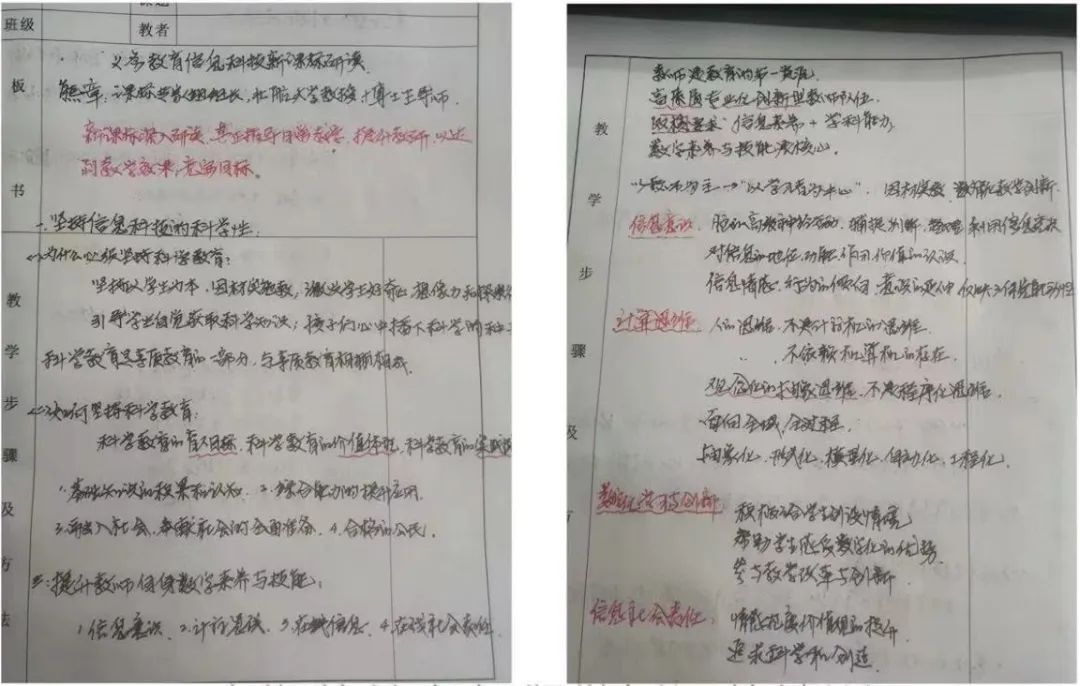 课题
班级
教者
板
书
教
学
步
骤
及
方
法
义务教育信息科技新课标研读
熊璋:课标专家组组长,北航大学教授,博士生导师.
新课标深入研读,真正指导日常教学,提升教研,以达
到教学效果,育人目标。
一.坚持信息科技的科学性:
<一>为什么必须坚持科学教育:
坚持以学生为本,因材施教,激发学生好奇心 想像力和探求欲
引导学生自觉获取科学知识;孩子们心中播下科学的种子
科学教育是素质教育的一部分,与素质教育相辅相成.
<二>如何坚持科学教育:
科学教育的育人目标.科学教育的价值体现.科学教育的实践
1.基础知识的积累和认知 2.综合能力的提升应用
3.而出入社会、奉献社会的全面准备. 4.合格的公民.
二:提升教师自身数字素养与技能:
1.信息意识 2.计算 3.在 信息 4.在 社会责任
教
学
步
骤
及
方
教师是教育的第一资源
高质量专业化创新型教师队伍.
信息素养+学科能力
数字素养与技能是核心.
以教师为主→"以学习者为中心". 因材施教 教学创新.
信息意识. 脑的高级神经活动,捕捉 判断,整理 利用信息
对信息的地位,功能、作用、价值的认识.
信息情感,行为的倾向,意识的 中 反映
计算思维. 人的思维,不是计算机的思维.
不依赖和计算机的存在.
观念化的抽象思维,不是程序化思维.
面向全域,全过程.
抽象化,形式化,模型化,自动化,工程化.
数字化学习与创新: 积极 学生 情境
帮助学生感受数字化的优势
参与教学改革与创新.
信息社会责任. 情感态度价值观的提升
追求科学和创造.